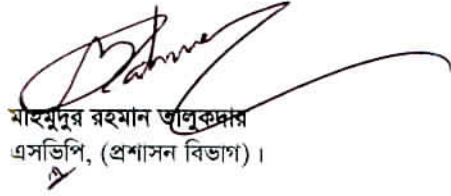 মাহমুদুর রহমান তালুকদার
এসভিপি, (প্রশাসন বিভাগ)।